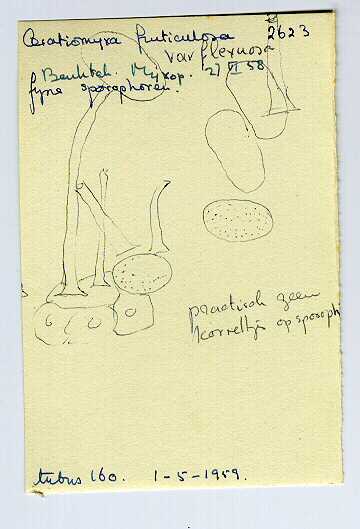 Ceratiomyxa fruticulosa 2623
var flexuosa
Myxop. 27 VI 58
fyne sporophoren.
practisch geen
korreltjes op sporoph
tubus 160. 1-5-1959.